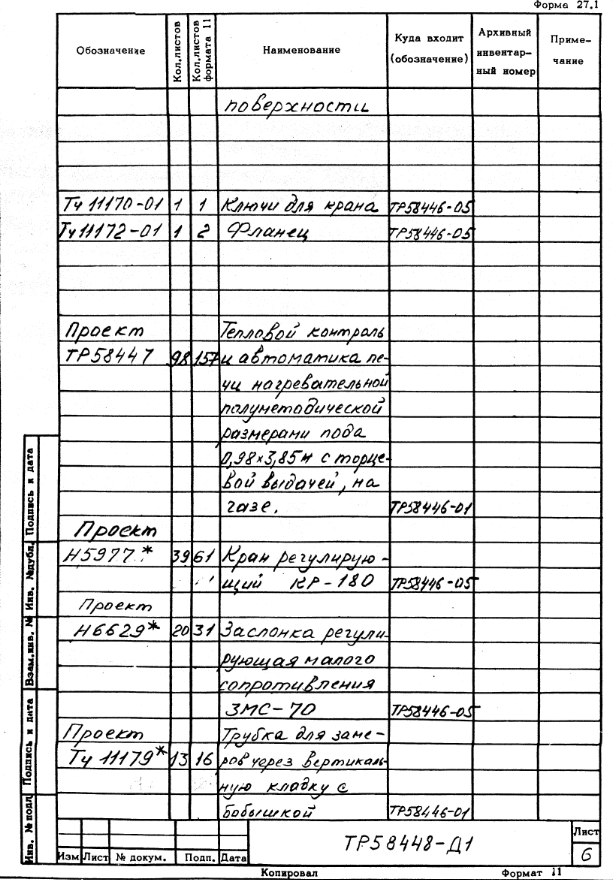 Форма 27.1
Обозначение Кол.листов Кол.листов формата 11 Наименование Куда входит (обозначение) Архивный инвентарный номер Примечание
поверхности
Ту 11170-01 1 1 Ключи для крана ТР58446-05
Ту 11172-01 1 2 Фланец ТР58446-05
Проект Тепловой контроль
ТР58447 98 157 и автоматика пе-
чи нагревательной
полуметодической
размерами пода
0,98×3,85м с торце-
вой выдачей, на
газе. ТР58446-01
Проект
Н5977* 39 61 Кран регулирую-
щий КР-180 ТР58446-05
Проект
Н6629* 20 31 Заслонка регули-
рующая малого
сопротивления
ЗМС-70 ТР58446-05
Проект Трубка для заме-
Ту 11179* 13 16 ров через вертикаль-
ную кладку с
бобышкой ТР58446-01
Подпись и дата
Инв. №дубл.
Взам.инв. №
Подпись и дата
Инв. № подл
Изм Лист № докум. Подп. Дата
ТР58448-Д1
Лист
6
Копировал Формат 11